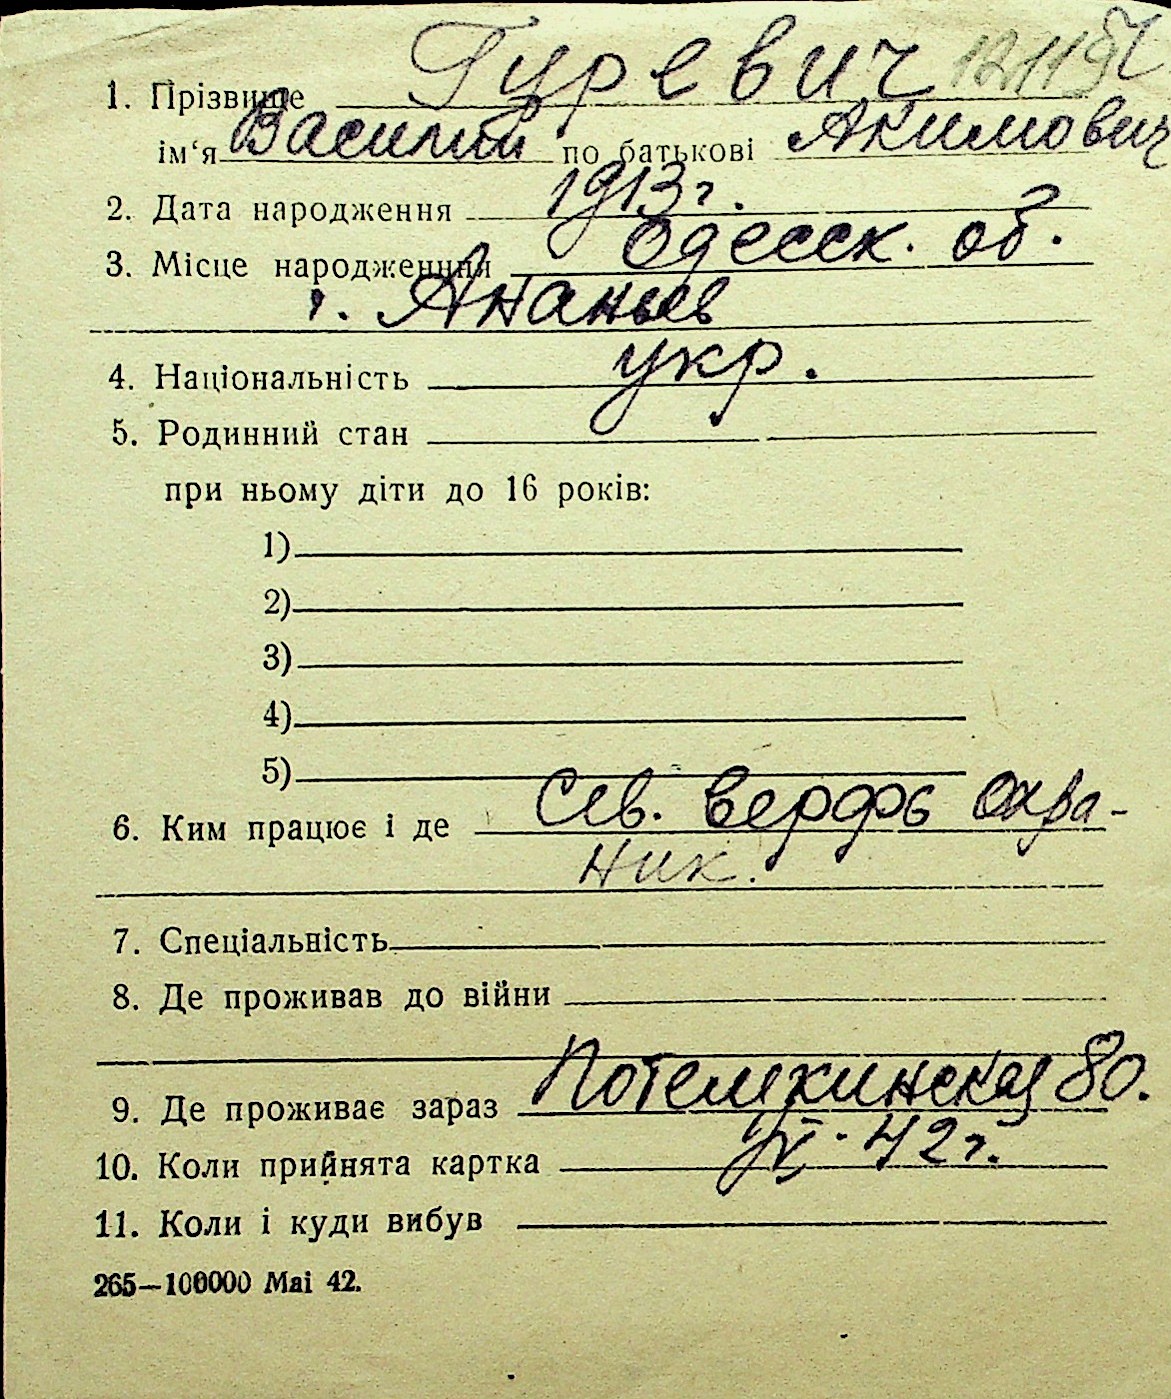 1. Прізвище Гуревич
ім‘я Василий по батькові Акимович
2. Дата народження 1913 г.
3. Місце народженння Одесск. об.
г. Ананьев
4. Національність укр.
5. Родинний стан
при ньому діти до 16 років:
1)
2)
3)
4)
5)
6. Ким працює і де Сев. верфь Охра-
ник.
7. Спеціальність
8. Де проживав до війни
9. Де проживає зараз Потемкинская 80.
10. Коли прийнята картка 42 г.
11. Коли і куди вибув
265—100000 Mai 42.